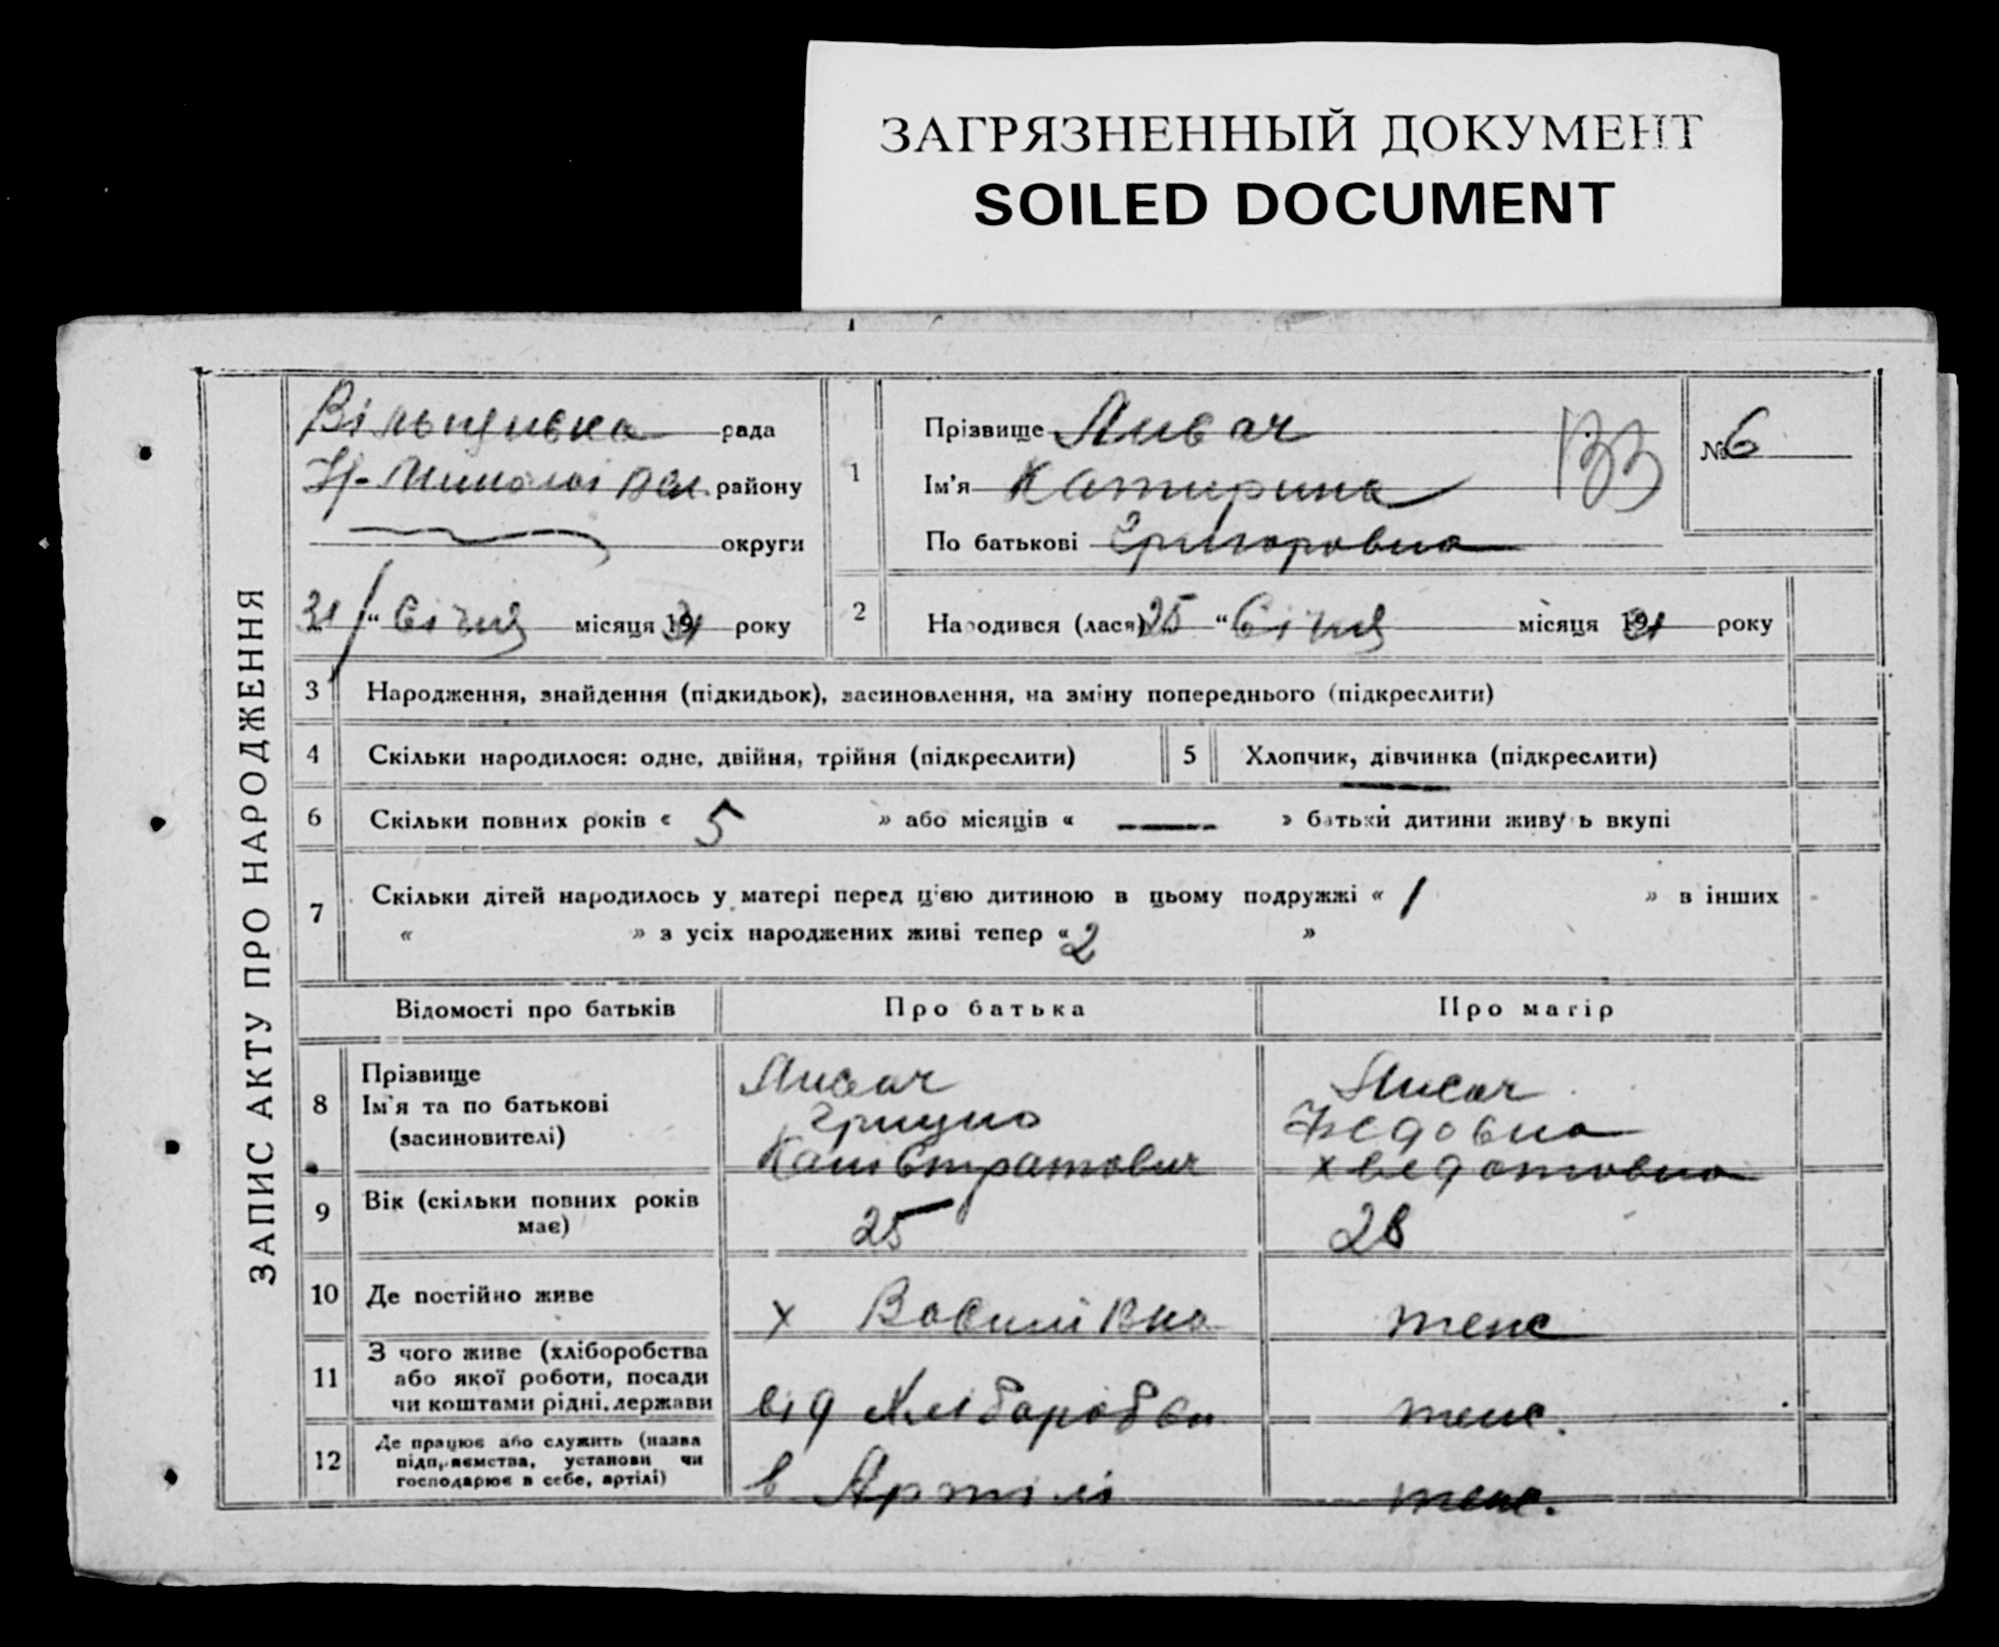 ЗАГРЯЗНЕННЫЙ ДОКУМЕНТ
SOILED DOCUMENT
ЗАПИС АКТУ ПРО НАРОДЖЕННЯ
рада
району
округи
31 “ Січня місяця 1931 року
1
Прізвище Ливач
Ім'я Катирина
По батькові Григоровна
133
№ 6
2 Народився (лася) 25 “ Січня місяця 1931 року
3 Народження, знайдення (підкидьок), засиновлення, на зміну попереднього (підкреслити)
4 Скільки народилося: одне, двійня, трійня (підкреслити)
5 Хлопчик, дівчинка (підкреслити)
6 Скільки повних років « 5 » або місяців « — » батьки дитини живуть вкупі
7 Скільки дітей народилось у матері перед ц'єю дитиною в цьому подружжі « 1 » в інших
« » з усіх народжених живі тепер « 2 »
Відомості про батьків Про батька Про матір
8 Прізвище
Ім'я та по батькові
(засиновителі)
Ливач
Грицко
Калістратович
Ливач
Хведотовна
9 Вік (скільки повних років має)
25
28
10 Де постійно живе
х Василівка
теж
11 З чого живе (хліборобства
або якої роботи, посади
чи коштами рідні, держави
від Хліборобва
теж.
12 Де працює або служить (назва
підприємства, установи чи
господарює в себе, артілі)
в Артілі
теж.